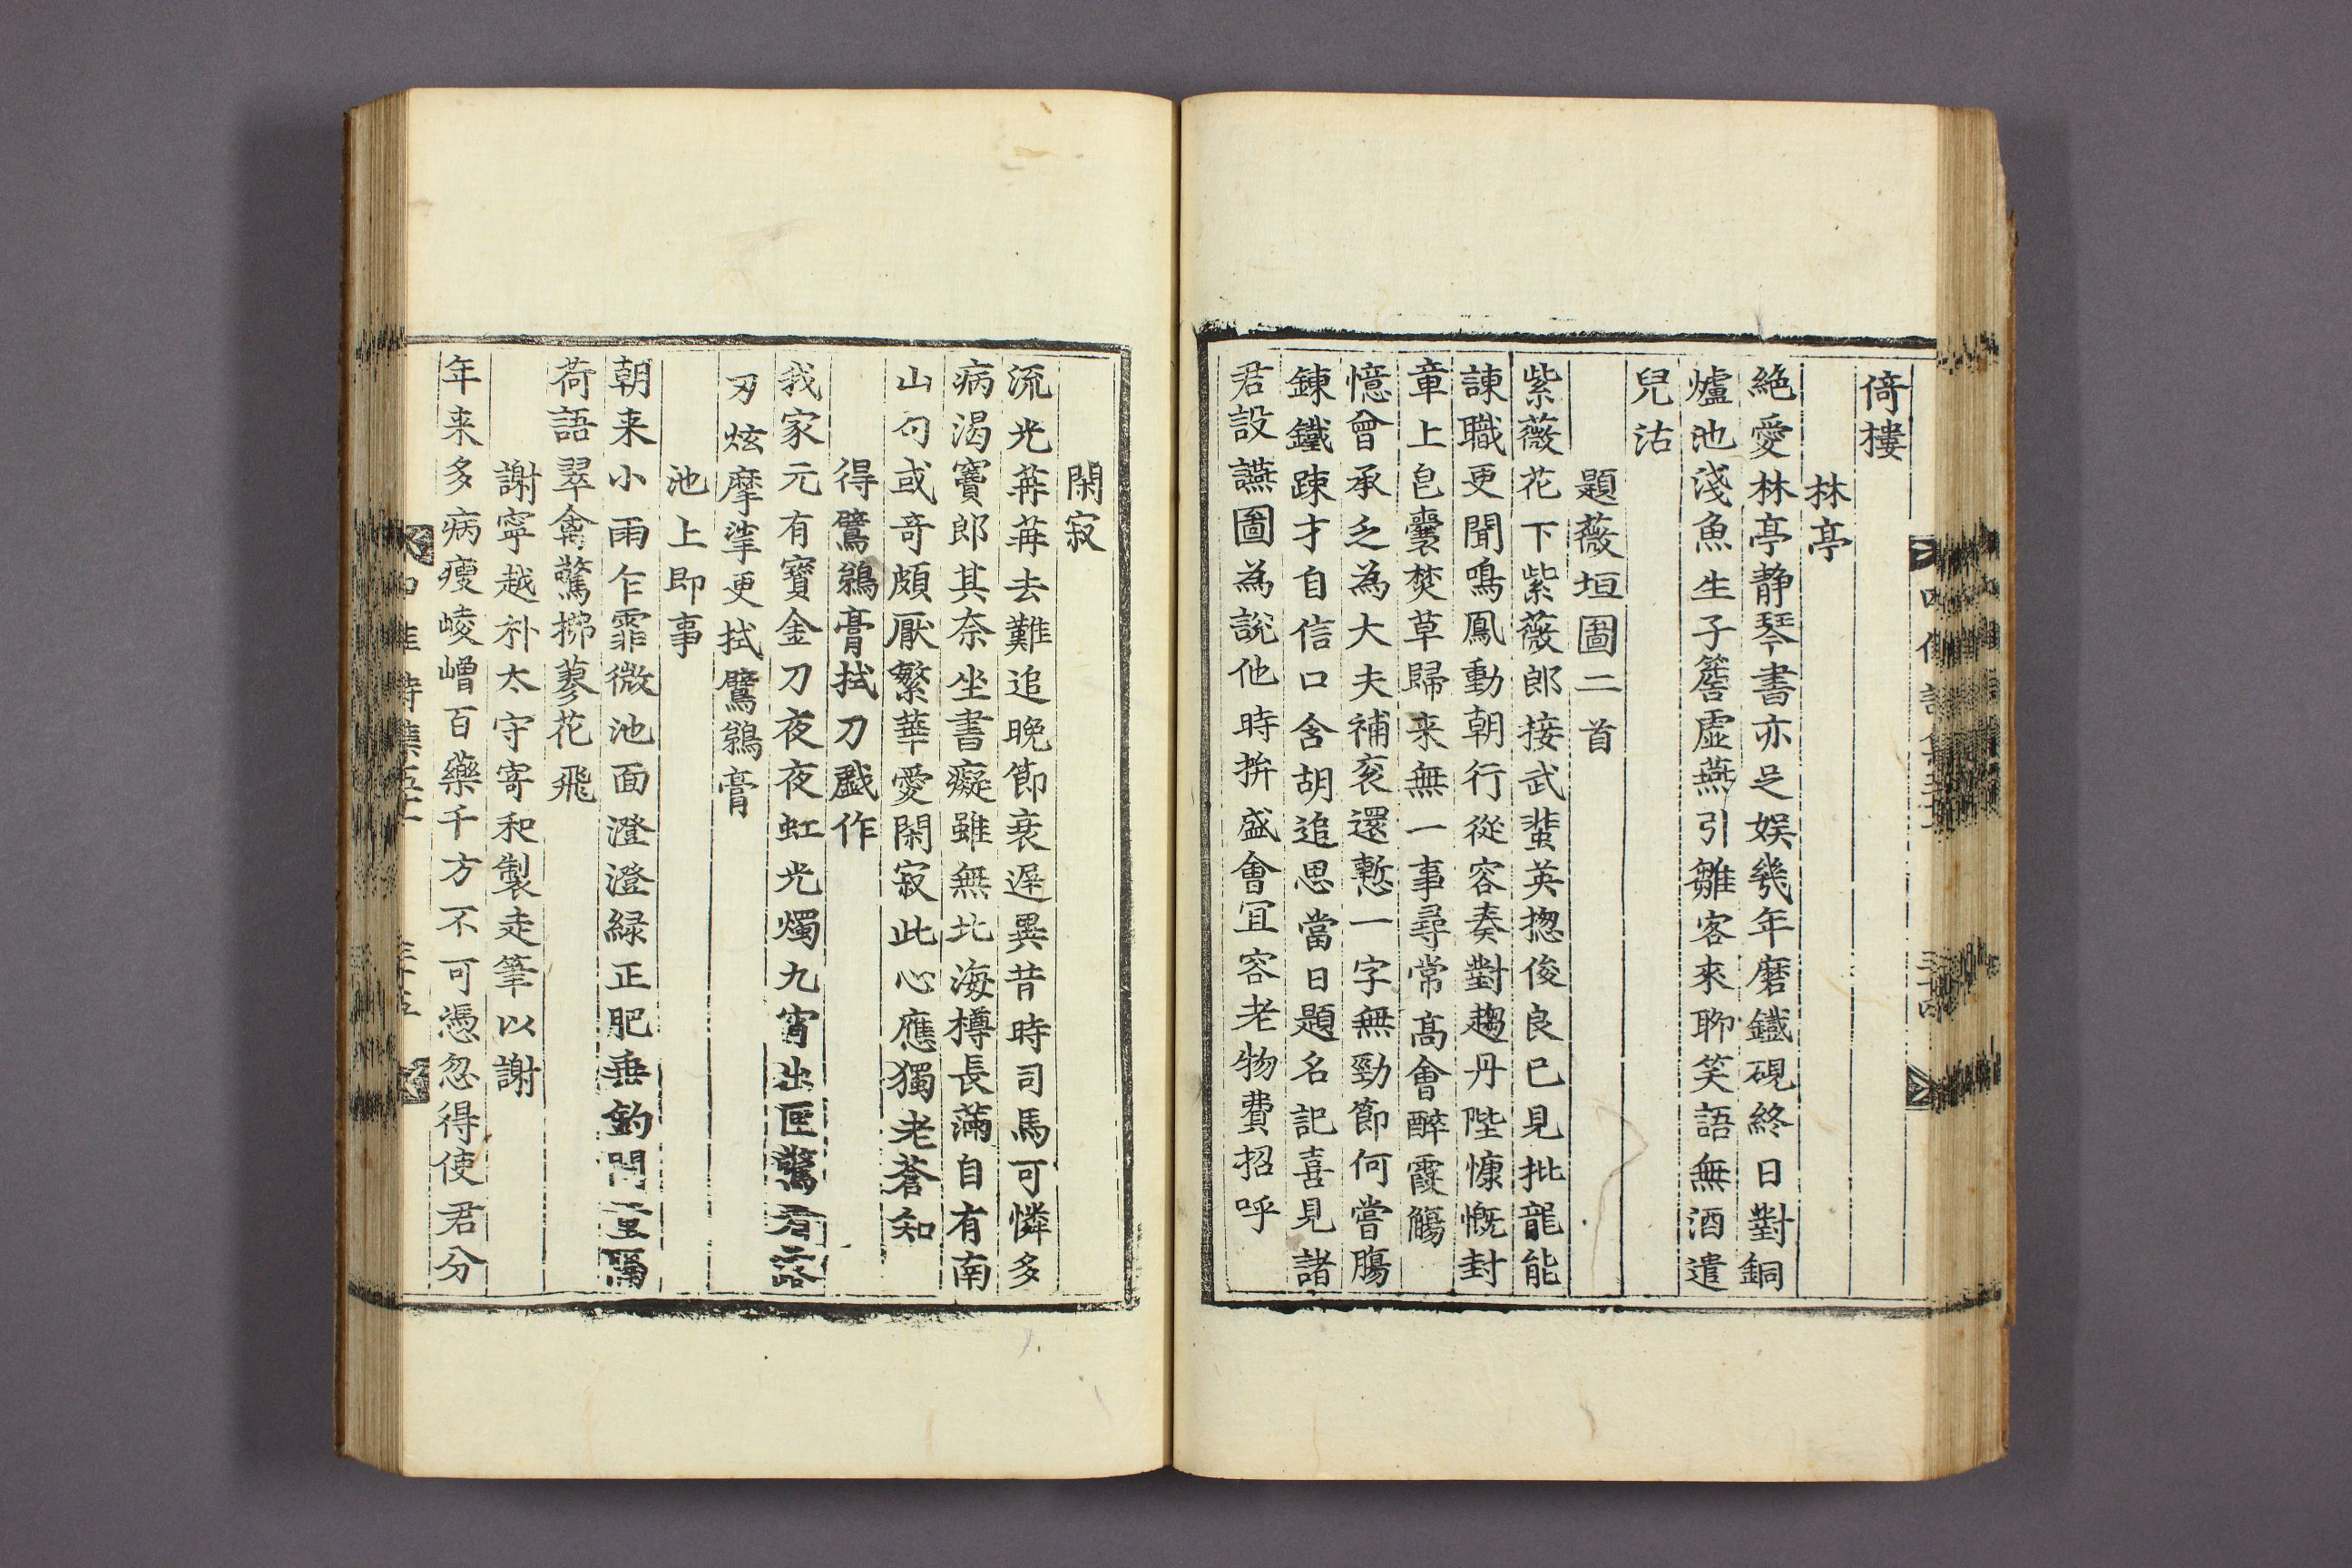 倚樓
林亭
絶愛林亭静琴書亦足娱幾年磨鐵硯終日對銅
爐池淺魚生子簷虚燕引雛客來聊笑語無酒遣
兒沽
題薇垣圖二首
紫薇花下紫薇郎接武蜚英揔俊良已見批龍能
諫職更聞鳴鳳動朝行從容奏對趨丹陛慷慨封
章上皂囊焚草歸来無一事尋常高會醉霞觴
憶曾承乏為大夫補衮還慙一字無勁節何嘗腸
鍊鐵踈才自信口含胡追思當日題名記喜見諸
君設讌圖為説他時拚盛會冝容老物費招呼
閑寂
流光苒苒去難追晚節衰遅異昔時司馬可憐多
病渴竇郎其奈坐書癡雖無北海樽長滿自有南
山句或奇頗厭繁華愛閑寂此心應獨老蒼知
得鷿鵜膏拭刀戱作
我家元有寳金刀夜夜虹光燭九宵出匣驚看
刃炫摩挲更拭鷿鵜膏
池上即事
朝来小雨乍霏微池面澄澄緑正肥垂釣隔
荷語翠禽驚拂蓼花飛
謝寧越朴太守寄和製走筆以謝
年来多病瘦崚嶒百藥千方不可憑忽得使君分